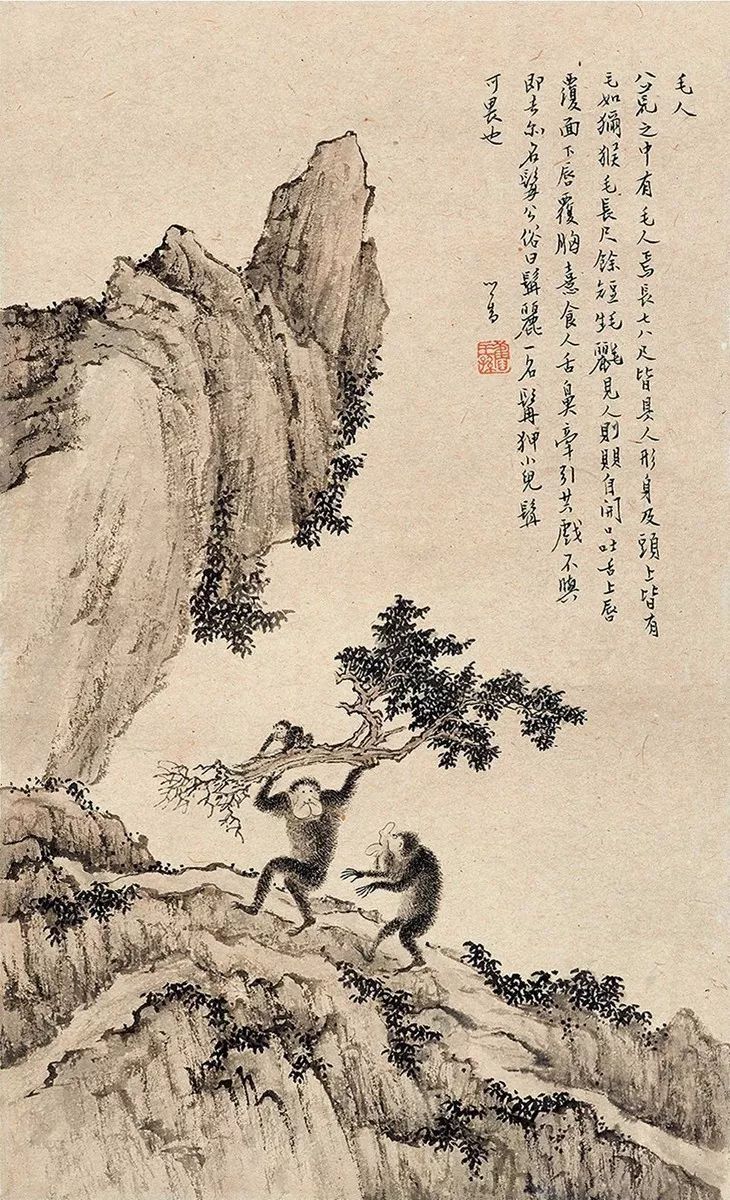 毛人
八荒之中有毛人焉長七八尺皆具人形身及頭上皆有
毛如獼猴毛長尺餘短見人則目開口吐舌上唇
覆面下唇覆胸憙食人舌鼻牽引共戲不與
即去尔名髯公俗曰髯麗一名髯狎小兒髯
可畏也
心畬
舊王孫